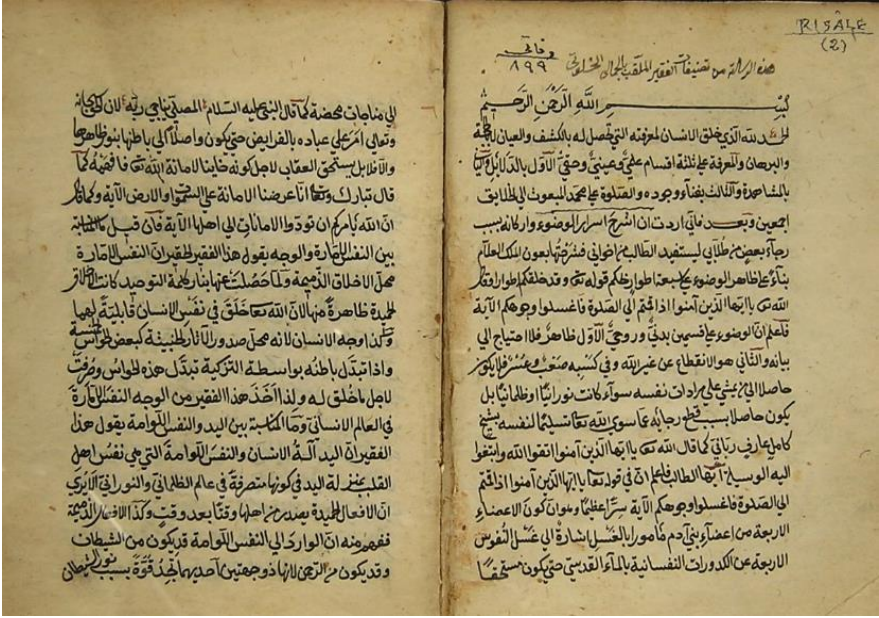 RISÂLE
(2)
وفاتى
٨٩٩
هذه الرسالة من تصنيفات الفقير الملقب بالجمال الخلوتى
بسم الله الرحمن الرحيم
الحمد لله الذى خلق الانسان لمعرفته التى تحصل له بالكشف والعيان والحجة
والبرهان والمعرفة على ثلثة اقسام علمى وعينى وحقى الأول بالدلائل والثانى
بالمشاهدة والثالث بفناء وجوده والصلوة على محمد المبعوث الى الخلايق
اجمعين وبعد فانى اردت ان اشرح اسرار الوضوء واركانه بسبب
رجاء بعض من طلابى ليستفيد الطالب من اخوانى فشرحتها بعون الملك العلام
بناء على ظاهر الوضوء على سبعة اطوار لكم قوله تعالى وقد خلقكم اطوارا وقال
الله تعالى يا ايها الذين آمنوا اذا قمتم الى الصلوة فاغسلوا وجوهكم الآية
فاعلم ان الوضوء على قسمين بدنى وروحى الأول ظاهر فلا احتياج الى
بيانه والثانى هو الانقطاع عن غير الله وفى كسبه صعب وعسر فلا يكون
حاصلا الى من يمشى على مرادات نفسه سوآء كانت نورانيا او ظلمانيا بل
يكون حاصلا بسبب قطع رجائه عما سوى الله تعا تسليما لنفسه بشيخ
كامل عارف ربانى كما قال الله تعالى يا ايها الذين آمنوا اتقوا الله وابتغوا
اليه الوسيلة ايها الطالب فاعلم ان فى قوله تعا يا ايها الذين آمنوا اذا قمتم
الى الصلوة فاغسلوا وجوهكم الآية سرا عظيما وهو ان كون الاعضاء
الاربعة من اعضاء بنى آدم مأمورا بالغسل اشارة الى غسل النفوس
الاربعة عن الكدورات النفسانية بالمآء القدسى حتى يكون مستحقا
الى مناجات محضة كما قال النبى عليه السلام المصلى يناجى ربه لان الحق سبحانه
وتعالى امر على عباده بالفرايض حتى يكون واصلا الى باطنها بنور ظاهرها
والآ فلا بل يستحق العقاب لاجل كونه خاينا لامانة الله تعا فافهمه كما
قال تبارك وتعا انا عرضنا الامانة على السموات والارض الآية وكما قال
ان الله يأمركم ان تودوا الامانات الى اهلها الآية فان قيل ما المناسبة
بين النفس الامارة والوجه يقول هذا الفقير الحقير ان النفس الامارة
محل الاخلاق الذميمة ولما حصلت عنها بنار كلمة التوحيد كانت الاخلاق
الحميدة ظاهرة منها لان الله تعا خلق فى نفس الانسان قابلية لهما
وكذا وجه الانسان لانه محل صدور الآثار الخبيثة كبعض الحواس
واذا تبدل باطنه بواسطة التزكية تبدل هذه الحواس وصرفت
لاجل ما خلق له ولذا اخذ هذا الفقير من الوجه النفس الامارة
فى العالم الانسانى وما المناسبة بين اليد والنفس اللوامة يقول هذا
الفقير ان اليد آلة الانسان والنفس اللوامة التى هى نفس اهل
القلب بمنزلة اليد فى كونها متصرفة فى عالم الظلمانى والنورانى الا يرى
ان الافعال الحميدة يصدر من اهلها وقتا بعد وقت وكذا الافعال الذميمة
ففهم منه ان الوارد الى النفس اللوامة قد يكون من الشيطان
وقد يكون من الرحمن لانها ذو جهتين احديهما تجد قوة بسبب نور الشيطان